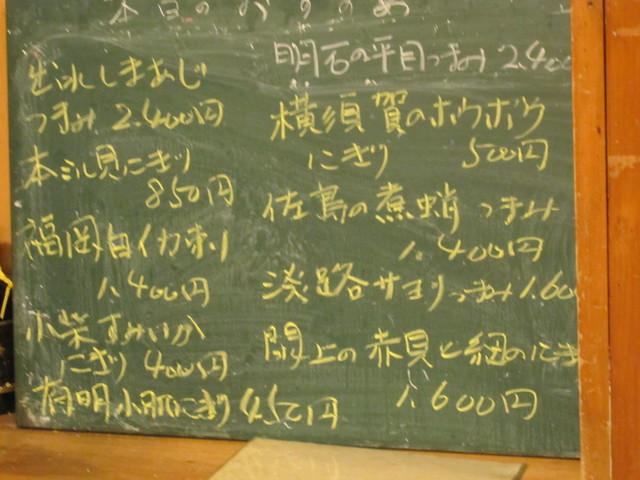 本日のおすすめ
出水しまあじ
つまみ 2.400円
本ミル貝にぎり
850円
福岡白イカ刺し
1.400円
小柴すみいか
にぎり 400円
有明小肌にぎり 450円
明石の平目つまみ 2.400
横須賀のホウボウ
にぎり 500円
佐島の煮蛸 つまみ
1.400円
淡路サヨリつまみ 1.60
閖上の赤貝と紐のにぎ
1.600円